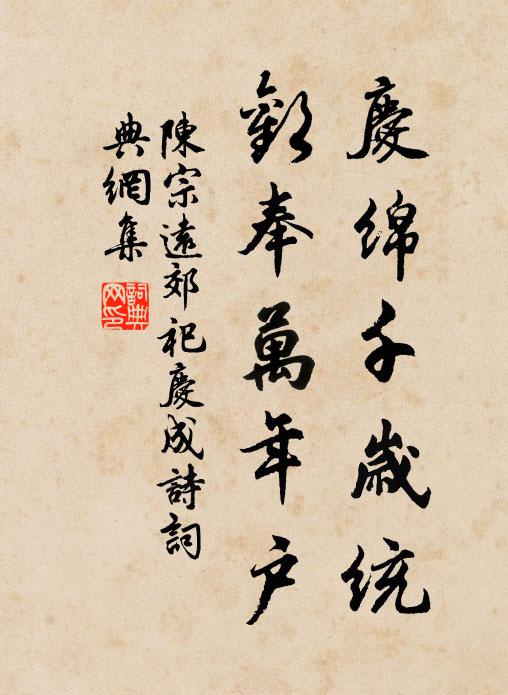 慶綿千歲統
歡奉萬年户
陳宗遠郊祀慶成詩詞
典網集
詞典
网印